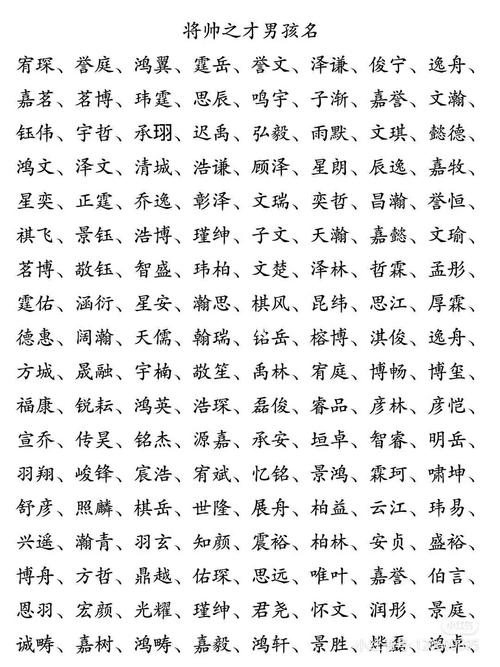 将帅之才男孩名
宥琛、誉庭、鸿翼、霆岳、誉文、泽谦、俊宁、逸舟、
嘉茗、茗博、玮霆、思辰、鸣宇、子渐、嘉誉、文瀚、
钰伟、宇哲、承珝、迟禹、弘毅、雨默、文琪、懿德、
鸿文、泽文、清城、浩谦、顾泽、星朗、辰逸、嘉牧、
星奕、正霆、乔逸、彰泽、文瑞、奕哲、昌瀚、誉恒、
祺飞、景钰、浩博、瑾绅、子文、天瀚、嘉懿、文瑜、
茗博、敬钰、智盛、玮柏、文楚、泽林、哲霖、孟彤、
霆佑、涵衍、星安、瀚思、棋风、昆纬、思江、厚霖、
德惠、阔瀚、天儒、翰瑞、岳、榕博、淇俊、逸舟、
方城、晟融、宇楠、敬笙、禹林、宥庭、博畅、博玺、
福康、锐耘、鸿英、浩琛、磊俊、睿品、彦林、彦恺、
宣乔、传昊、铭杰、源嘉、承安、垣卓、智睿、明岳、
羽翔、峻锋、宸浩、宥斌、忆铭、景鸿、霖珂、啸坤、
舒彦、照麟、棋岳、世隆、展舟、柏益、云江、玮易、
兴遥、瀚青、羽玄、知颜、震裕、柏林、安贞、盛裕、
博舟、方哲、鼎越、佑琛、思远、唯叶、嘉誉、伯言、
恩羽、宏颜、光耀、瑾绅、君尧、怀文、润彤、景庭、
诚畴、嘉树、鸿畴、嘉毅、鸿轩、景胜、烨磊、鸿卓、